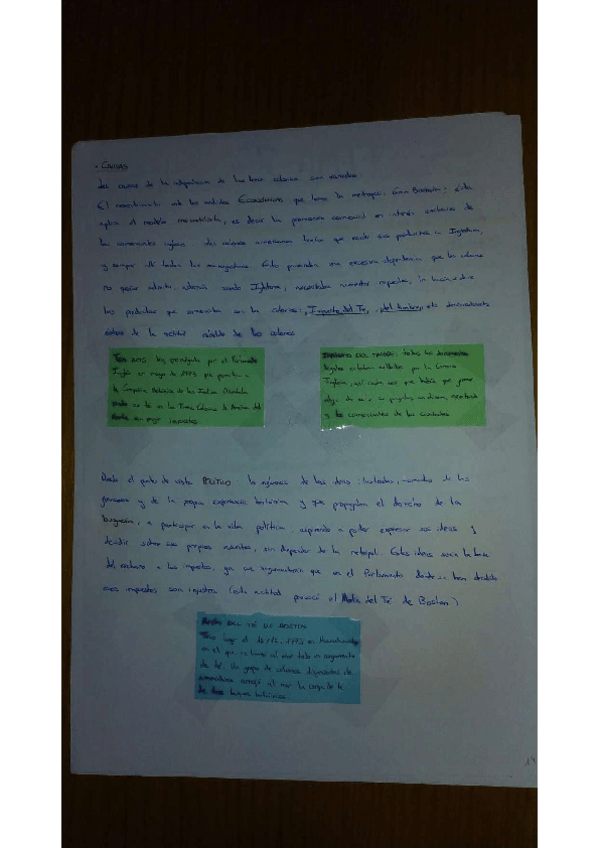 • CAUSAS
Las causas de la independencia de las trece colonias son variadas
El resentimiento ante las medidas ECONÓMICAS que toma la metrópoli Gran Bretaña: Esta
aplica el modelo mercantilista, es decir la comercial en interés exclusivo de
los comerciantes ingleses. Los colonos tenían que vender sus productos a Inglaterra,
y comprar allí todas las manufacturas. Esto provocaba una excesiva dependencia que los colonos
no querían admitir, además siendo Inglaterra, necesitaba aumentar
los productos que con las colonias, Impuesto del Té, del timbre, etc
de la actitud rebelde de los colonos
TEA ACTS: ley promulgada por el Parlamento
Inglés en mayo de 1773 que permitía a
la Compañía Británica de las Indias Orientales
té en las Trece Colonias de América del
Norte sin pagar impuestos
IMPUESTO DEL TIMBRE: todos los documentos
legales estaban por la Corona
Inglesa, así cada vez que había que pagar
algo
y los comerciantes de las ciudades
Desde el punto de vista POLÍTICO: la influencia de las ideas ilustradas, nacidas de los
franceses y de la propia experiencia británica y que propugnaban el derecho de la
burguesía, a participar en la vida política, aspirando a poder expresar sus ideas y
decidir sobre sus propios asuntos, sin depender de la metrópoli. Estas ideas serán la base
del rechazo a los impuestos, ya que argumentarán que en el Parlamento donde se han decidido
esos impuestos son injustos (esta actitud provocó el Motín del Té de Boston)
MOTÍN DEL TÉ DE BOSTON
Tuvo lugar el 16/12/1773 en Massachusetts
en el que se lanzó al mar todo un cargamento
de té. Un grupo de colonos disfrazados de
amerindios arrojó al mar la carga de té
de tres buques británicos.